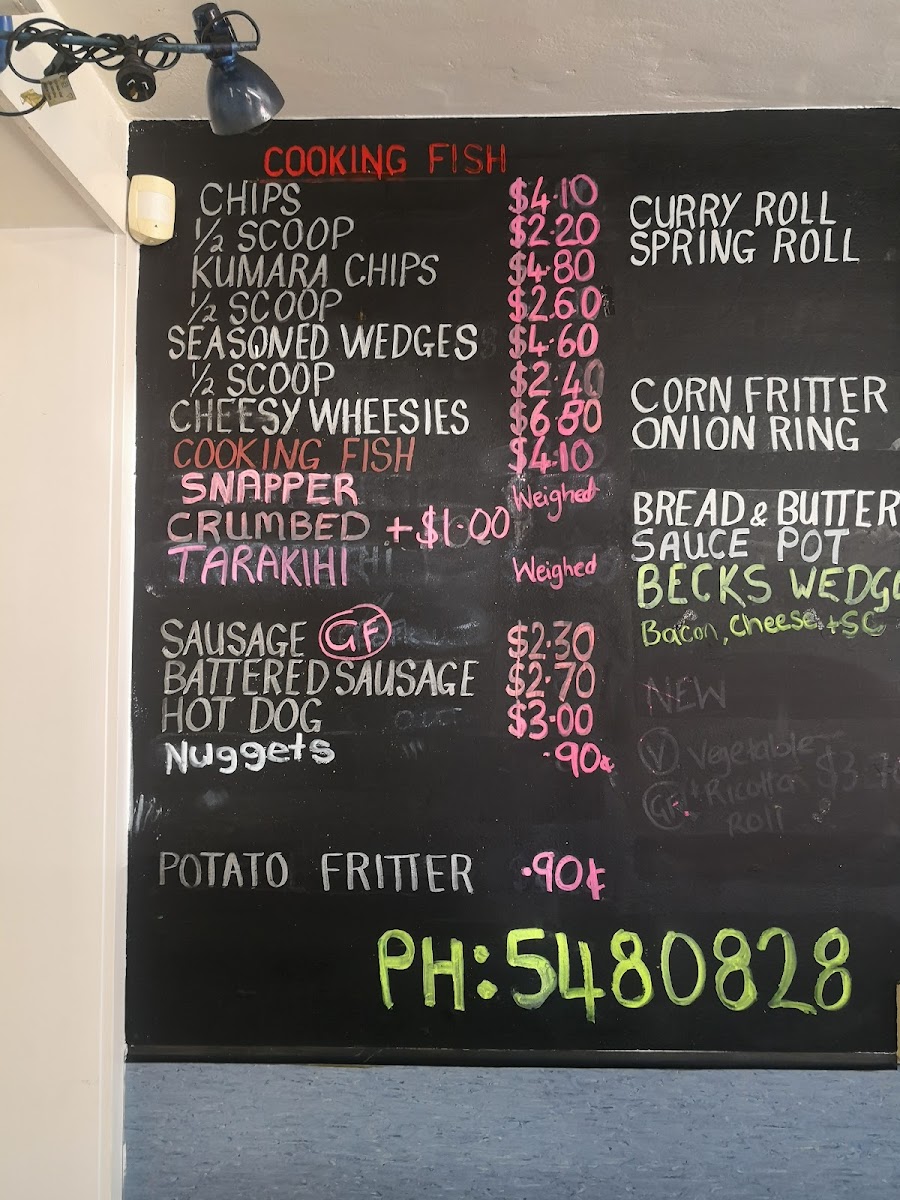 COOKING FISH
CHIPS $4.10
1/2 SCOOP $2.20
KUMARA CHIPS $4.80
1/2 SCOOP $2.60
SEASONED WEDGES $4.60
1/2 SCOOP $2.40
CHEESY WHEESIES $6.80
COOKING FISH $4.10
SNAPPER Weighed
CRUMBED +$1.00
TARAKIHI Weighed
SAUSAGE GF $2.30
BATTERED SAUSAGE $2.70
HOT DOG $3.00
Nuggets .90¢
POTATO FRITTER .90¢
CURRY ROLL
SPRING ROLL
CORN FRITTER
ONION RING
BREAD & BUTTER
SAUCE POT
BECKS WEDG
Bacon, Cheese + SC
NEW
V Vegetable
GF + Ricotta
Roll
PH: 5480828